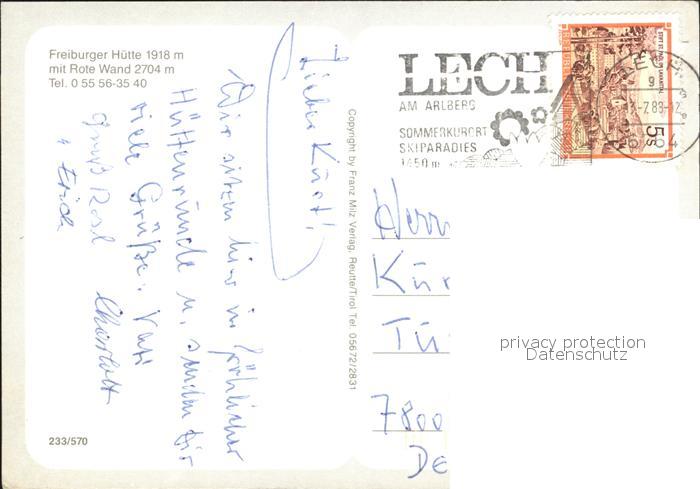 Freiburger Hütte 1918 m
mit Rote Wand 2704 m
Tel. 0 55 56-35 40
Lieber Kurt!
Wir sitzen hier in fröhlicher
Hüttenrunde u. senden Dir
viele Grüße. Kati
Gruß Rosl
u. Erich
Charlott
233/570
Copyright by Franz Milz Verlag, Reutte/Tirol Tel. 05672/2831
LECH
AM ARLBERG
SOMMERKURORT
SKIPARADIES
1450 m
5 S
Herrn
Kur
Tü
7800
De
privacy protection
Datenschutz